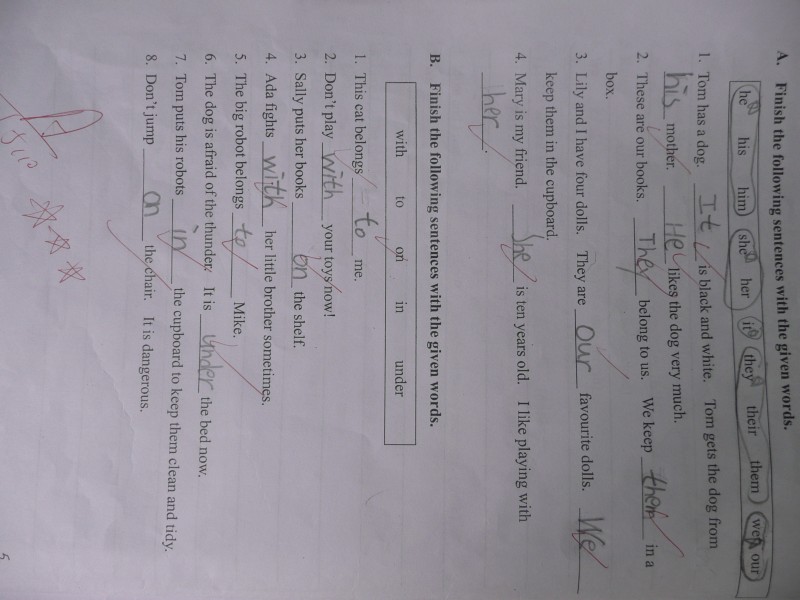 A. Finish the following sentences with the given words.
he his him she her it they their them we our
1. Tom has a dog. It is black and white. Tom gets the dog from
his mother. He likes the dog very much.
2. These are our books. They belong to us. We keep them in a
box.
3. Lily and I have four dolls. They are our favourite dolls. We
keep them in the cupboard.
4. Mary is my friend. She is ten years old. I like playing with
her.
B. Finish the following sentences with the given words.
with to on in under
1. This cat belongs to me.
2. Don't play with your toys now!
3. Sally puts her books on the shelf.
4. Ada fights with her little brother sometimes.
5. The big robot belongs to Mike.
6. The dog is afraid of the thunder. It is under the bed now.
7. Tom puts his robots in the cupboard to keep them clean and tidy.
8. Don't jump on the chair. It is dangerous.
5